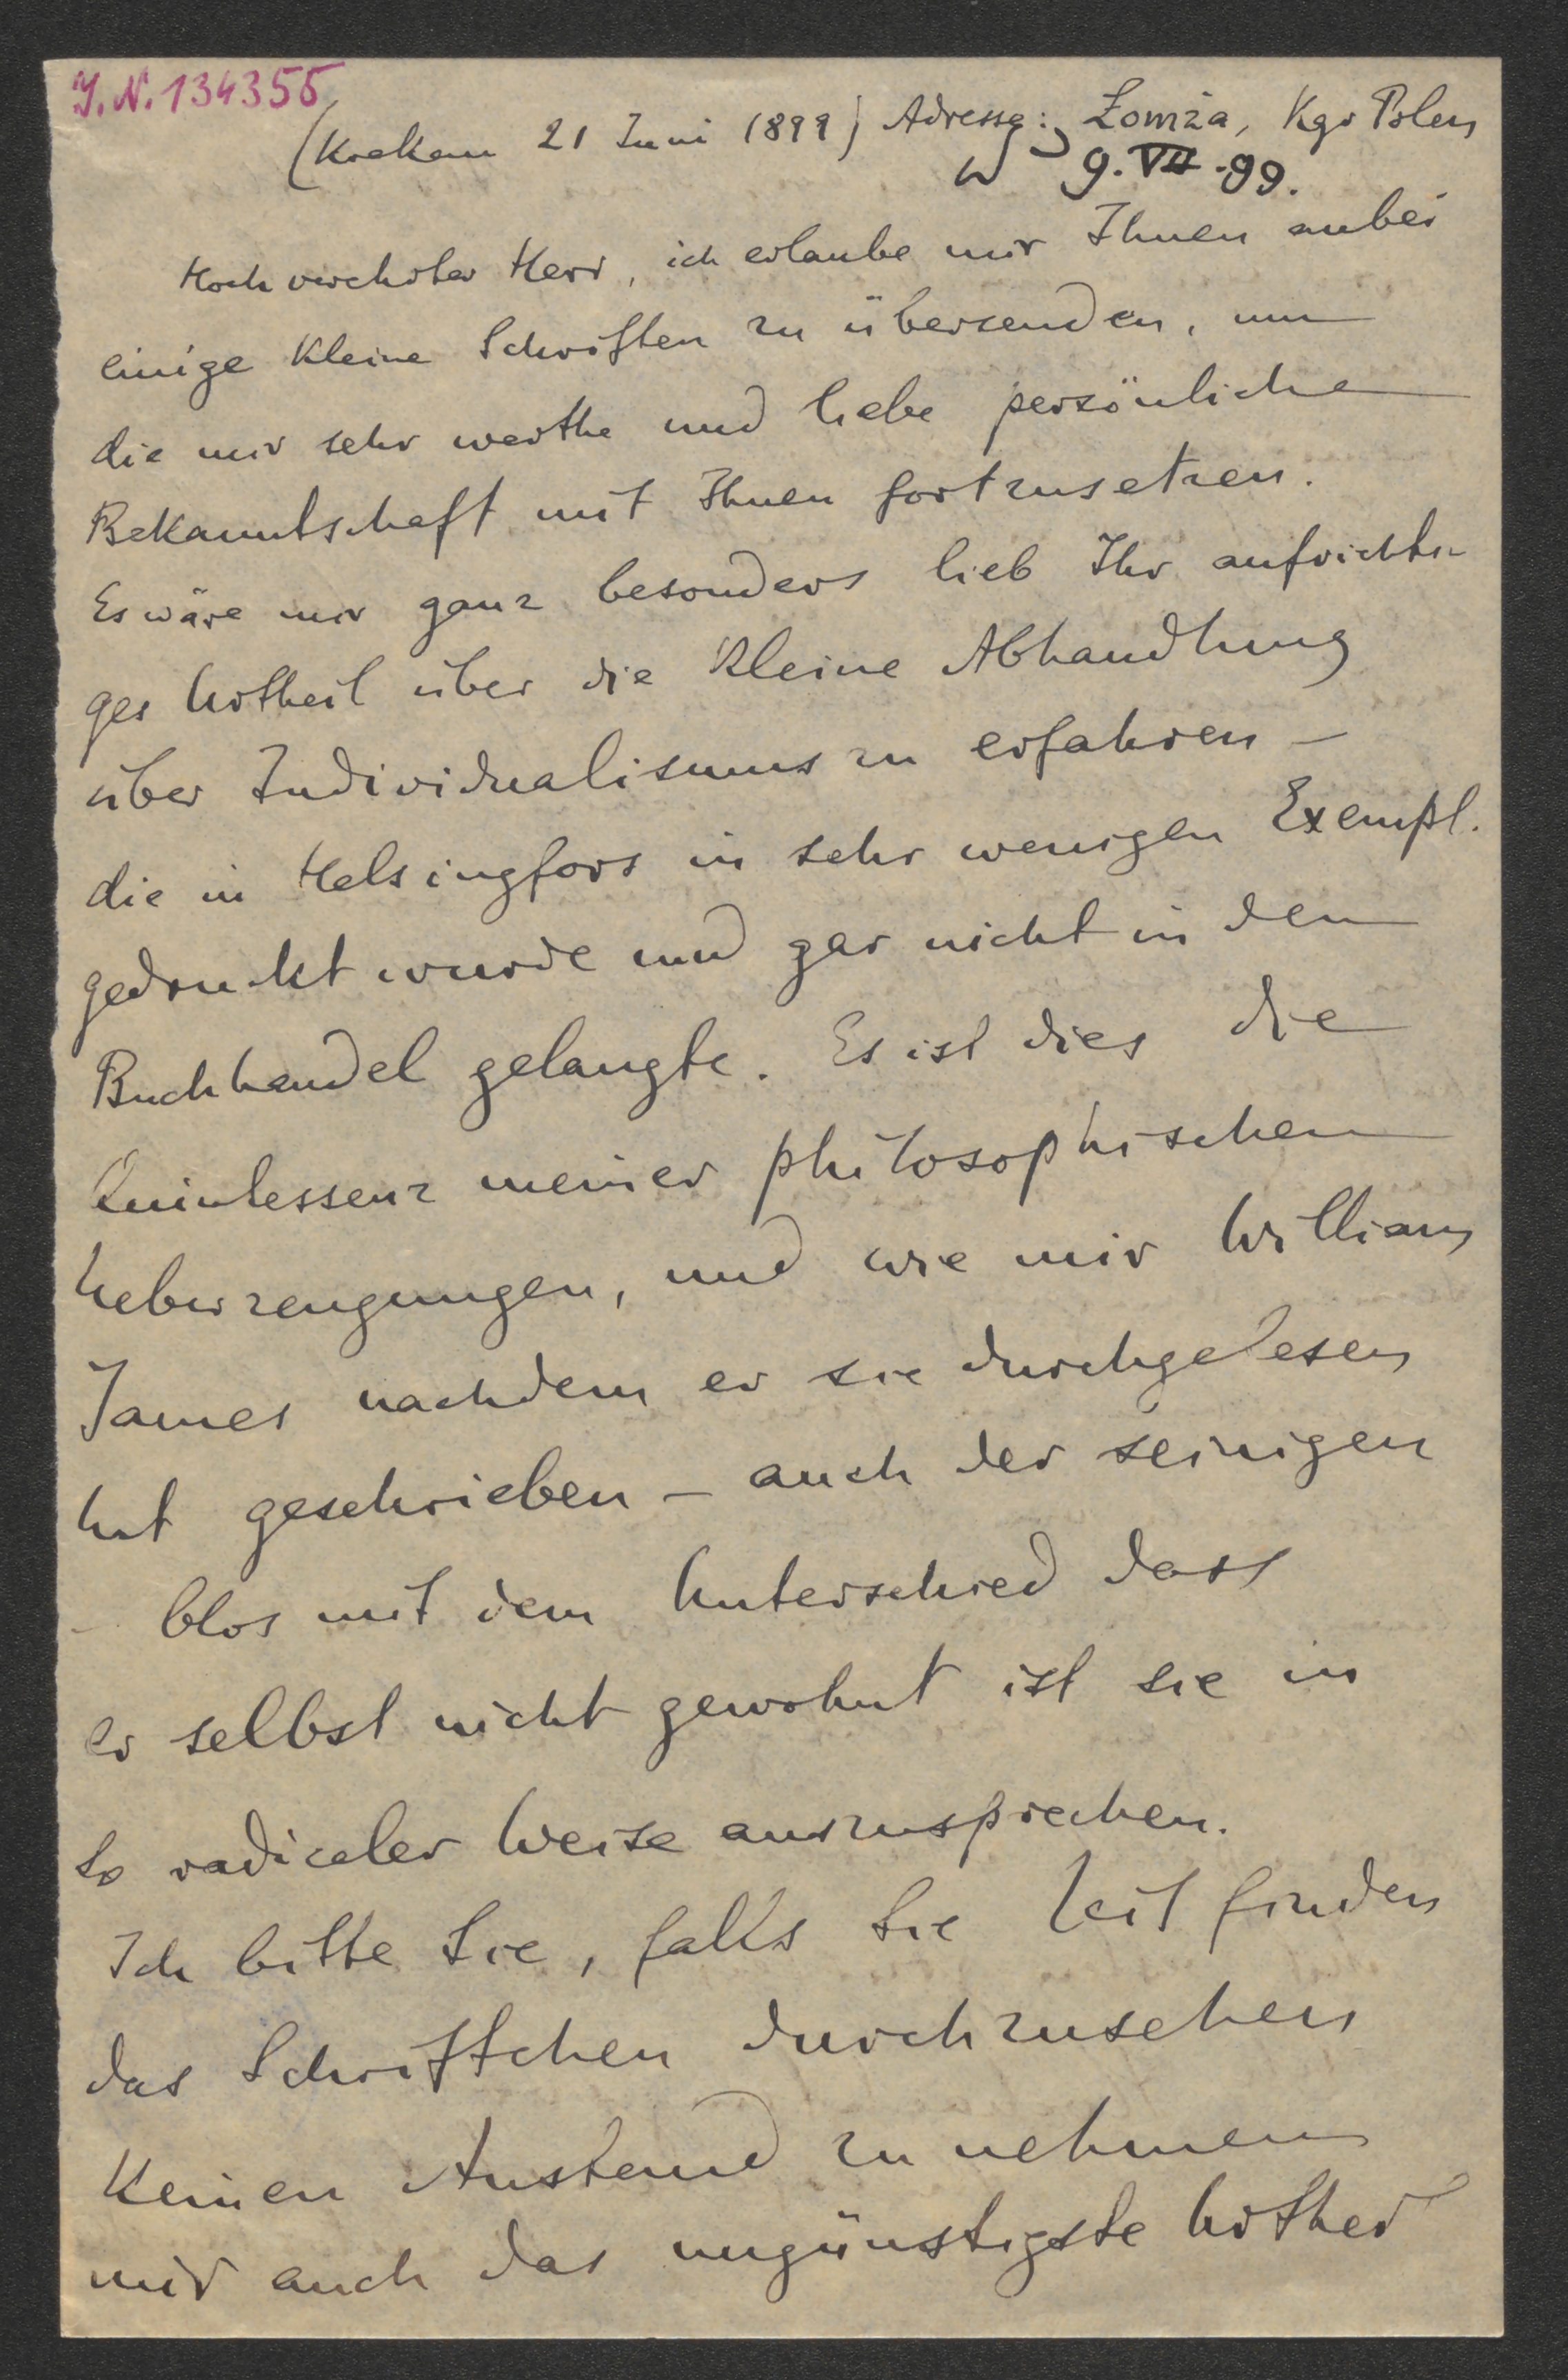 J.N. 134355
(Krakau 21 Juni 1899) Adresse: Łomża, Kgr Polen
9. VII -99.
Hochverehrter Herr, ich erlaube mir Ihnen anbei
einige Kleine Schriften zu übersenden, um
die mir sehr werthe und liebe persönliche
Bekanntschaft mit Ihnen fortzusetzen.
Es wäre mir ganz besonders lieb Ihr aufrichti-
ges Urtheil über die Kleine Abhandlung
über Individualismus zu erfahren –
die in Helsingfors in sehr wenigen Exempl.
gedruckt wurde und gar nicht in den
Buchhandel gelangte. Es ist dies die
Quintessenz meiner philosophischen
Ueberzeugungen, und wie mir William
James nachdem er sie durchgelesen
hat geschrieben – auch der seinigen
– blos mit dem Unterschied dass
er selbst nicht gewohnt ist sie in
so radicaler Weise auszusprechen.
Ich bitte Sie, falls Sie Zeit finden
das Schriftchen durchzusehen
Keinen Anstand zu nehmen
mir auch das ungünstigste Urtheil